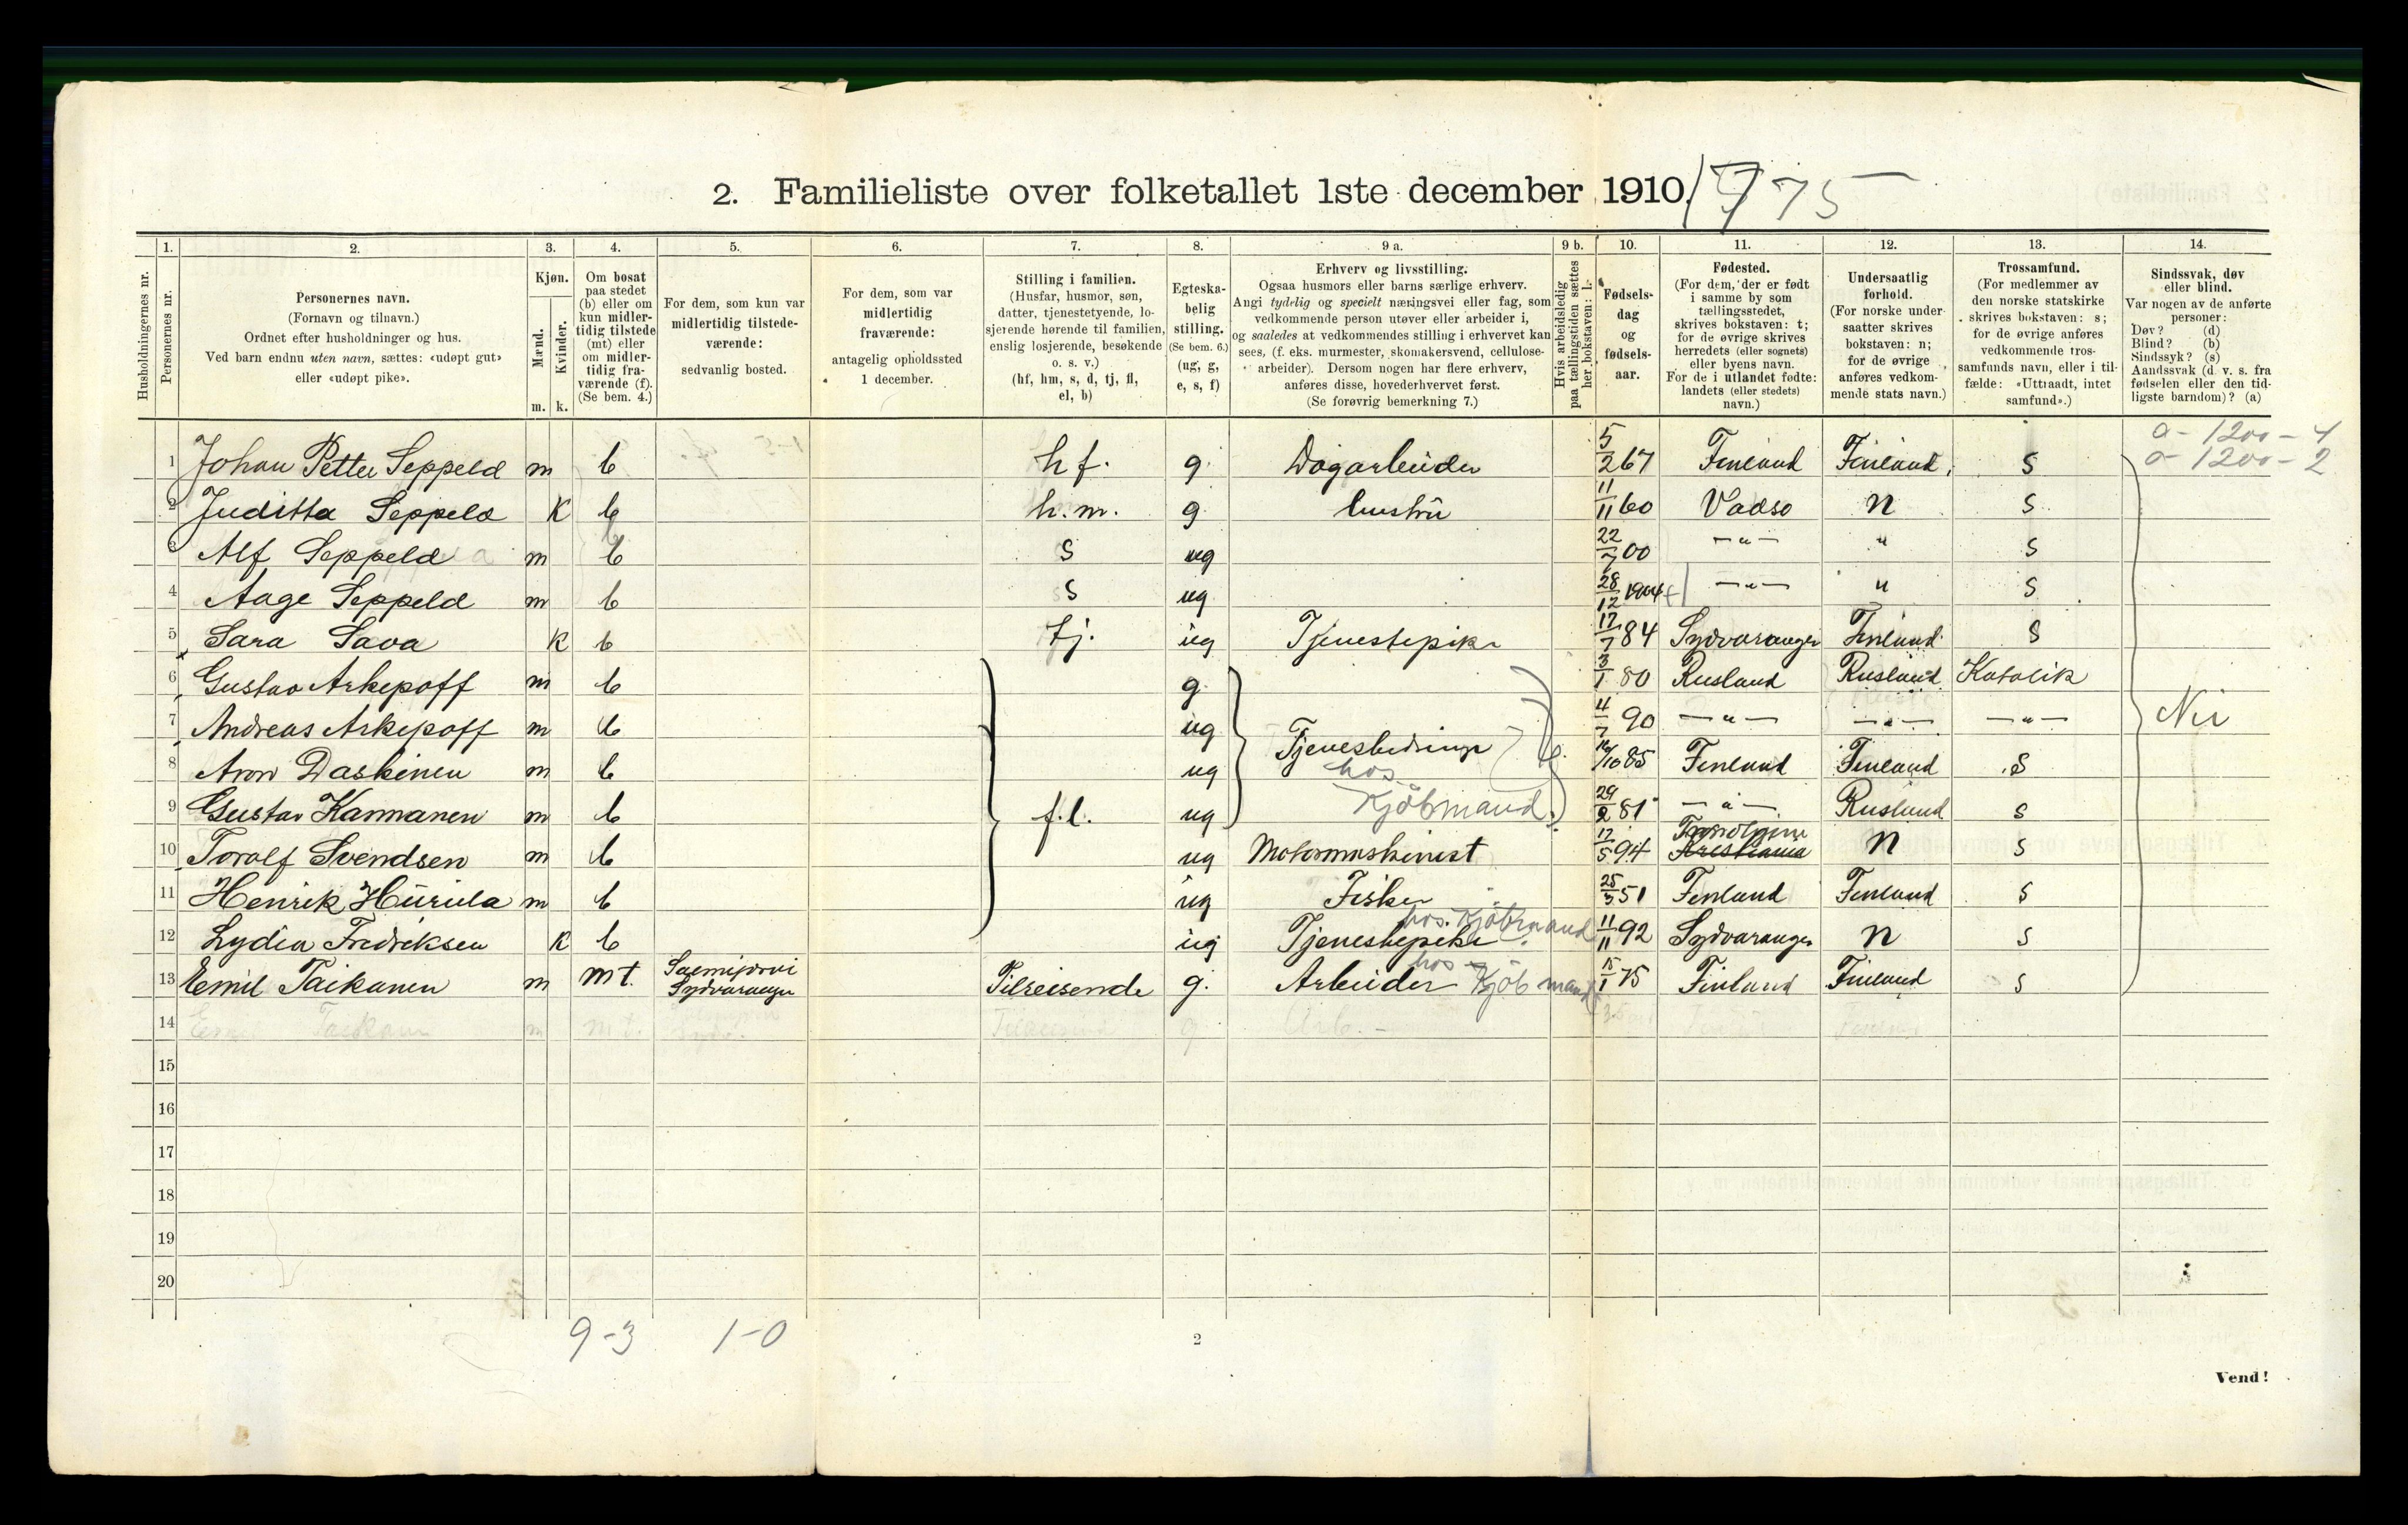 2. Familieliste over folketallet 1ste december 1910.
775
1. 2. 3. 4. 5. 6. 7. 8. 9 a. 9 b. 10. 11. 12. 13. 14.
Husholdningernes nr.
Personernes nr.
Personernes navn.
(Fornavn og tilnavn.)
Ordnet efter husholdninger og hus.
Ved barn endnu uten navn, sættes: «udøpt gut»
eller «udøpt pike».
Kjøn.
Mænd.
Kvinder.
m. k.
Om bosat
paa stedet
(b) eller om
kun midler-
tidig tilstede
(mt) eller
om midler-
tidig fra-
værende (f).
(Se bem. 4.)
For dem, som kun var
midlertidig tilstede-
værende:
sedvanlig bosted.
For dem, som var
midlertidig
fraværende:
antagelig opholdssted
1 december.
Stilling i familien.
(Husfar, husmor, søn,
datter, tjenestetyende, lo-
sjerende hørende til familien,
enslig losjerende, besøkende
o. s. v.)
(hf, hm, s, d, tj, fl,
el, b)
Egteska-
belig
stilling.
(Se bem. 6.)
(ug, g,
e, s, f)
Erhverv og livsstilling.
Ogsaa husmors eller barns særlige erhverv.
Angi tydelig og specielt næringsvei eller fag, som
vedkommende person utøver eller arbeider i,
og saaledes at vedkommendes stilling i erhvervet kan
sees, (f. eks. murmester, skomakersvend, cellulose-
arbeider). Dersom nogen har flere erhverv,
anføres disse, hovederhvervet først.
(Se forøvrig bemerkning 7.)
Hvis arbeidsledig
paa tællingstiden sættes
her bokstaven: l.
Fødsels-
dag
og
fødsels-
aar.
Fødested.
(For dem, der er født
i samme by som
tællingsstedet,
skrives bokstaven: t;
for de øvrige skrives
herredets (eller sognets)
eller byens navn.
For de i utlandet fødte:
landets (eller stedets)
navn.)
Undersaatlig
forhold.
(For norske under-
saatter skrives
bokstaven: n;
for de øvrige
anføres vedkom-
mende stats navn.)
Trossamfund.
(For medlemmer av
den norske statskirke
skrives bokstaven: s;
for de øvrige anføres
vedkommende tros-
samfunds navn, eller i til-
fælde: «Uttraadt, intet
samfund».)
Sindssvak, døv
eller blind.
Var nogen av de anførte
personer:
Døv? (d)
Blind? (b)
Sindssyk? (s)
Aandssvak (d. v. s. fra
fødselen eller den tid-
ligste barndom)? (a)
a - 1200 - 4
a - 1200 - 2
1 Johan Petter Seppelä m b hf. g. Dagarbeider 5/2 67 Finland Finland. s
2 Juditta Seppelä K b h.m. g hustru 11/11 60 Vadsø n s
3 Alf Seppelä m b s ug 22/7 00 —"— " s
4 Aage Seppelä m b s ug 28/12 1904 —"— " s
5 Sara Sava K b tj. ug Tjenestepike 17/7 84 Sydvaranger Finland s
6 Gustav Arkepoff m b g. 3/1 80 Rusland Rusland Katolik
7 Andreas Arkepoff m b ug 4/7 90 —"— —"— —"— Nei
Tjenestedreng
8 Aron Daskinen m b ug 16/10 85 Finland Finland s
hos
Kjøbmand
9 Gustav Kannanen m b f.l. ug 29/2 81 —"— Rusland s
10 Toralf Svendsen m b ug Motormaskinist 17/5 94 Kristiania n s
11 Henrik Hurula m b ug Fisker 25/3 51 Finland Finland s
hos Kjøbmand
12 Lydia Fredriksen K b ug Tjenestepike 11/11 92 Sydvaranger n s
13 Emil Taikanen m mt. Salmijærvi
Sydvaranger Tilreisende g. Arbeider hos Kjøbmand 15/1 75 Finland Finland s
14 Emil m mt. g Arb. -
15
16
17
18
19
20
9-3 1-0
2
Vend!